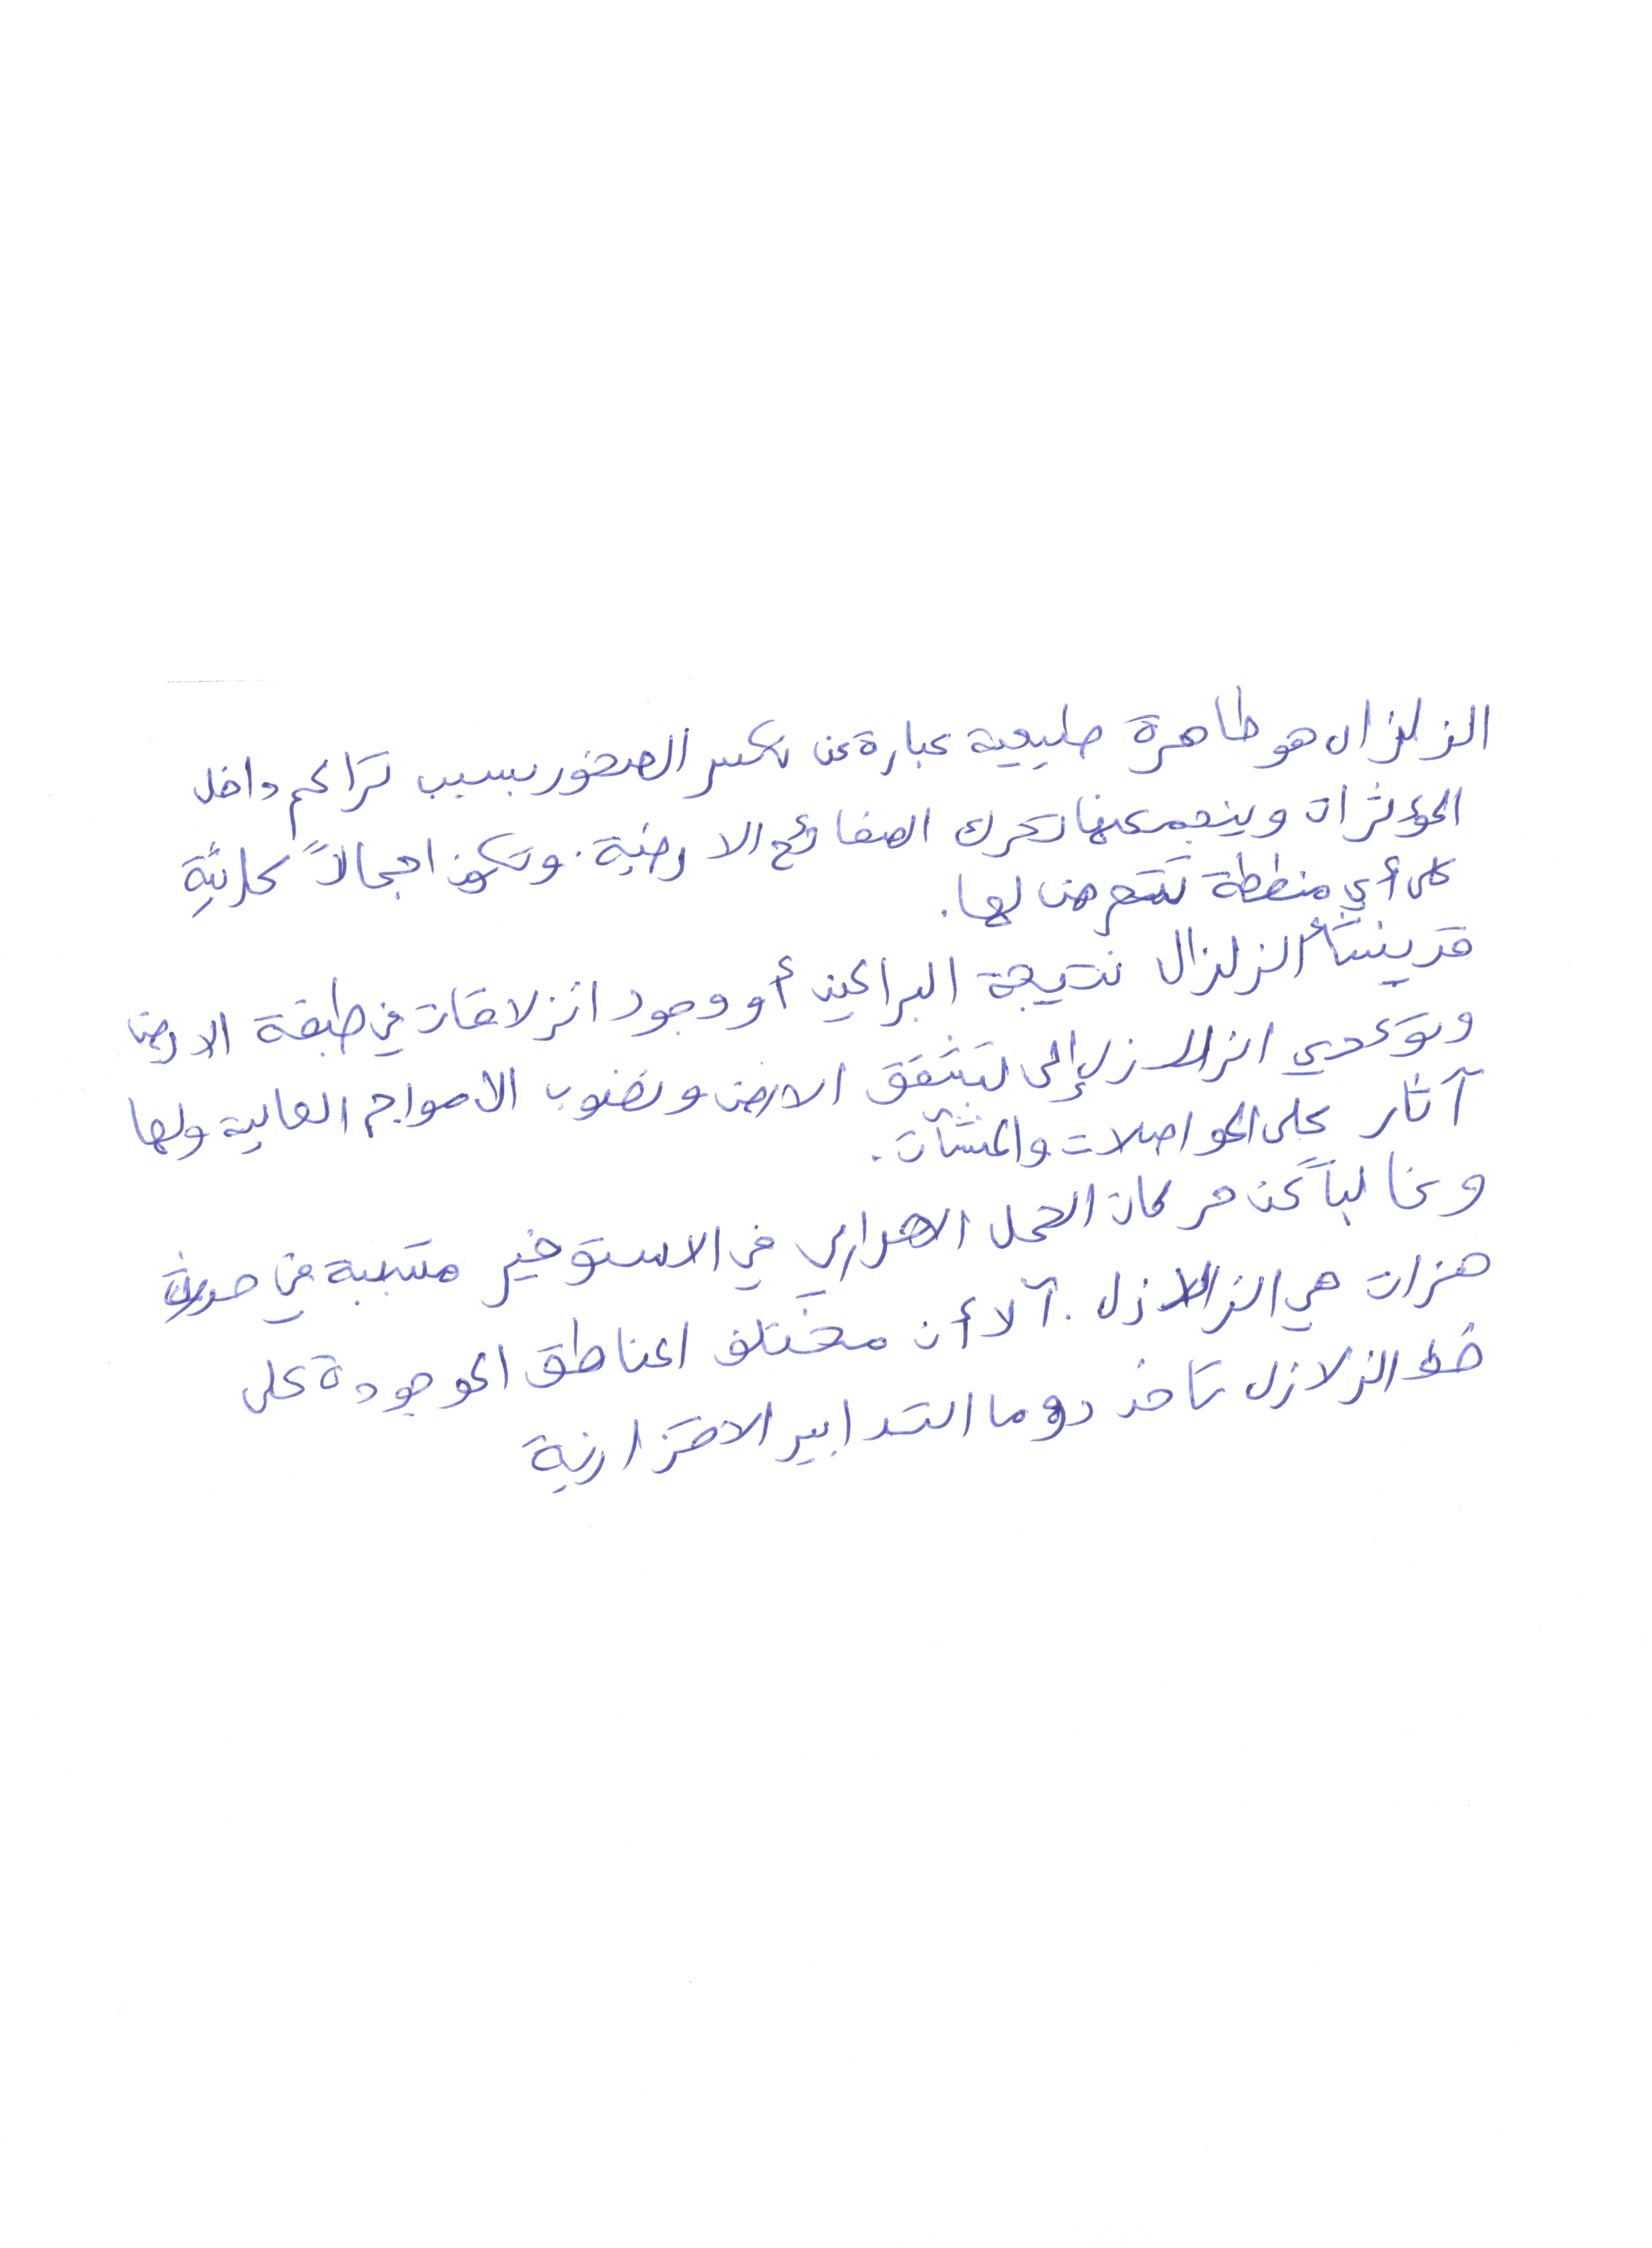 الزلزال هو ظاهرة طبيعية عبارة عن تكسر الصخور بسبب تراكم داخل
المؤثرات وينجم عنها تحرك الصفائح الارضية. وتكون اجمالاً كارثية
على أي منطقة تتعرض لها.
قد ينشأ الزلزال نتيجة البراكين أو وجود انزلاقات في طبقة الارض
وتؤدي الزلازل إلى تشقق الارض ونضوب الامواج العالية ولها
آثار على المواصلات والمنشآت.
وغالباً عن حركات الحمل الحراري في الاستوفير متسببة في حدوث
هزات هي الزلازل. آلا أن مختلف المناطق الموجودة على
خط الزلازل تأخذ دوما التدابير الاحترازية